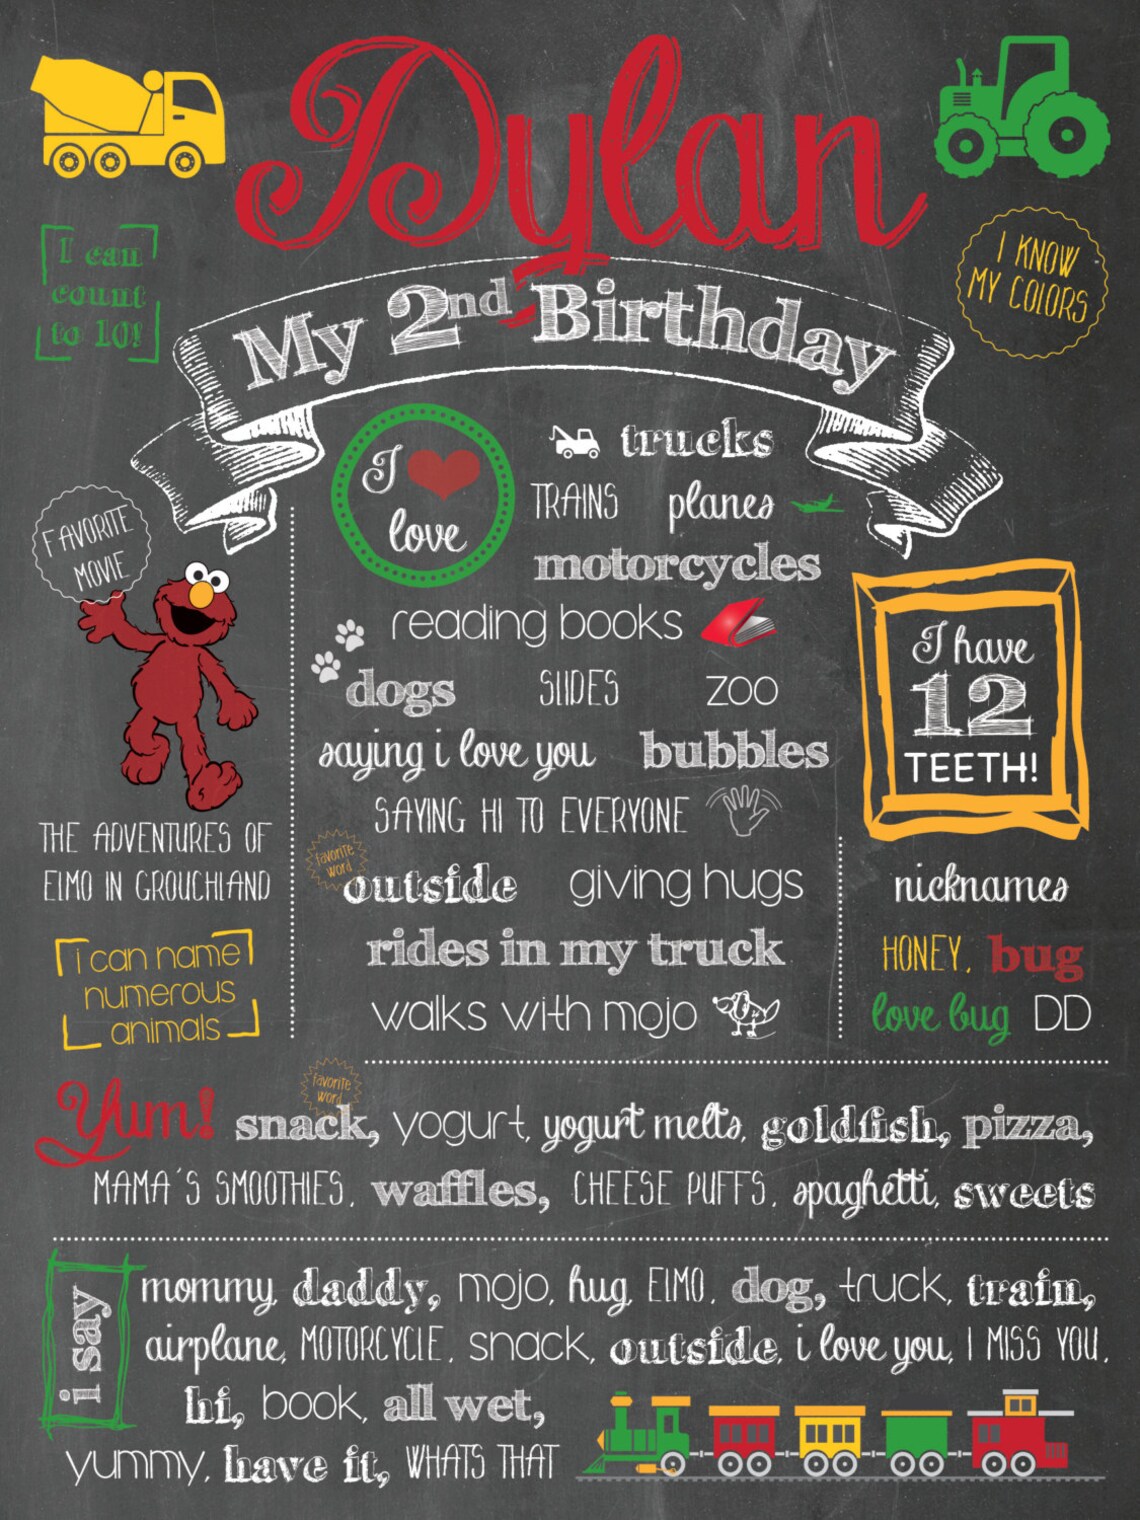 Dylan
My 2nd Birthday
I can
count
to 10!
I KNOW
MY COLORS
I
love
trucks
TRAINS planes
motorcycles
reading books
dogs SLIDES ZOO
saying i love you bubbles
SAYING HI TO EVERYONE
favorite
word
outside giving hugs
rides in my truck
walks with mojo
FAVORITE
MOVIE
THE ADVENTURES OF
ELMO IN GROUCHLAND
i can name
numerous
animals
I have
12
TEETH!
nicknames
HONEY, bug
love bug DD
favorite
word
Yum! snack, yogurt, yogurt melts, goldfish, pizza,
MAMA'S SMOOTHIES, waffles, CHEESE PUFFS, spaghetti, sweets
i say
mommy, daddy, mojo, hug, ELMO, dog, truck, train,
airplane, MOTORCYCLE, snack, outside, i love you, I MISS YOU,
hi, book, all wet,
yummy, have it, WHATS THAT